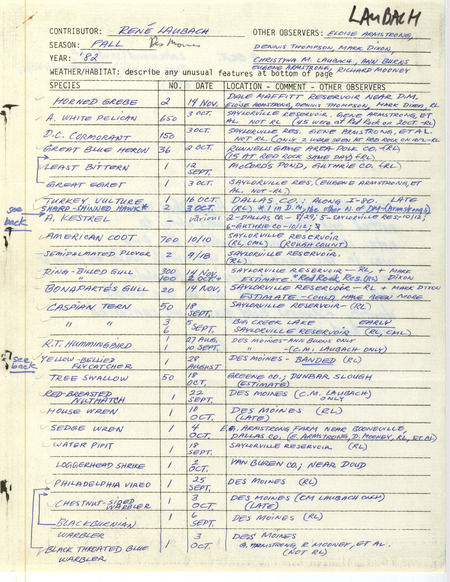 LAUBACH
CONTRIBUTOR: RENÉ LAUBACH OTHER OBSERVERS: ELOISE ARMSTRONG,
SEASON: FALL Des Moines DENNIS THOMPSON, MARK DIXON,
YEAR: '82 CHRISTYNA M. LAUBACH, ANN BURNS
EUGENE ARMSTRONG, RICHARD MOONEY
WEATHER/HABITAT: describe any unusual features at bottom of page
SPECIES NO. DATE LOCATION - COMMENT - OTHER OBSERVERS
HORNED GREBE 2 19 NOV. DALE MAFFITT RESERVOIR NEAR D.M.
ELOISE ARMSTRONG, DENNIS THOMPSON, MARK DIXON, RL
A. WHITE PELICAN 650 3 OCT SAYLORVILLE RESERVOIR. GENE ARMSTRONG, ET
AL. NOT RL
D.C. CORMORANT 150 3 OCT. SAYLORVILLE RES. GENE ARMSTRONG, ET AL.
NOT RL (ONLY 2 WERE SEEN AT RED ROCK ON 10/2-RL)
GREAT BLUE HERON 36 2 OCT RUNNELLS GAME AREA-POLK CO.-(RL)
(15 AT RED ROCK SAME DAY) (RL)
LEAST BITTERN 1 12 SEPT. McCORD'S POND, GUTHRIE CO. (RL)
GREAT EGRET 1 3 OCT. SAYLORVILLE RES. (EUGENE ARMSTRONG, ET
AL. NOT-RL)
TURKEY VULTURE 1 16 OCT. DALLAS CO.; ALONG I-80. LATE
see back
SHARP-SHINNED HAWK* 2 3 OCT. (RL)
A. KESTREL - various 2-DALLAS CO.- 5-SAYLORVILLE RES-10/12;
6-GUTHRIE CO-10/12;
AMERICAN COOT 700 10/10 SAYLORVILLE RESERVOIR
(RL, CML) (ROUGH COUNT)
SEMIPALMATED PLOVER 2 9/18 SAYLORVILLE RESERVOIR.
(RL)
RING-BILLED GULL 300 14 NOV. SAYLORVILLE RESERVOIR - RL + MARK
" 100 2 OCT* ESTIMATE *Red Rock Res. (RL) DIXON
BONAPARTE'S GULL 20 14 NOV. SAYLORVILLE RESERVOIR - RL + MARK DIXON
ESTIMATE - COULD HAVE BEEN MORE
CASPIAN TERN 50 18 SEPT. SAYLORVILLE RESERVOIR - (RL)
" " 3 5 BIG CREEK LAKE EARLY
6 SEPT. SAYLORVILLE RESERVOIR (RL, CML)
R.T. HUMMINGBIRD 1 27 AUG. DES MOINES-ANN BURNS ONLY
1 10 SEPT. " -(C.M. LAUBACH ONLY)
see back
YELLOW-BELLIED FLYCATCHER 1 28 AUGUST DES MOINES - BANDED (RL)
TREE SWALLOW 50 18 OCT. GREENE CO.; DUNBAR SLOUGH
(ESTIMATE)
RED-BREASTED NUTHATCH 1 22 SEPT. DES MOINES (C.M. LAUBACH)
ONLY
HOUSE WREN 1 18 OCT. DES MOINES (RL)
(LATE)
SEDGE WREN 1 4 OCT. E.G. ARMSTRONG FARM NEAR BOONEVILLE,
DALLAS CO. (E. ARMSTRONG, D. MOONEY, RL, ET AL)
WATER PIPIT 1 18 SEPT. SAYLORVILLE RESERVOIR (RL)
LOGGERHEAD SHRIKE 1 OCT. VAN BUREN CO; NEAR DOUD
PHILADELPHIA VIREO 1 25 SEPT. DES MOINES (RL)
CHESTNUT-SIDED WARBLER 1 3 OCT. DES MOINES (CM LAUBACH ONLY)
(LATE)
BLACKBURNIAN WARBLER 1 6 SEPT. DES MOINES (RL)
BLACK THROATED BLUE WARBLER 1 3 OCT. DES MOINES
G. ARMSTRONG, R. MOONEY, ET AL.
(NOT RL)